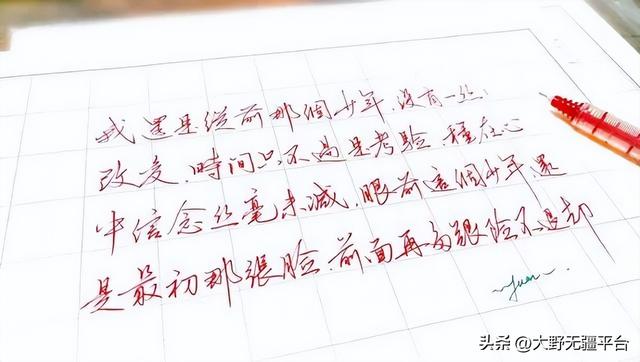 我還是從前那個少年,没有一丝
改变,時間只不過是考驗,種在心
中信念丝毫未減,眼前這個少年,還
是最初那張臉,前面再多艱险不退却
~Yuan~.
头条 @大野无疆平台